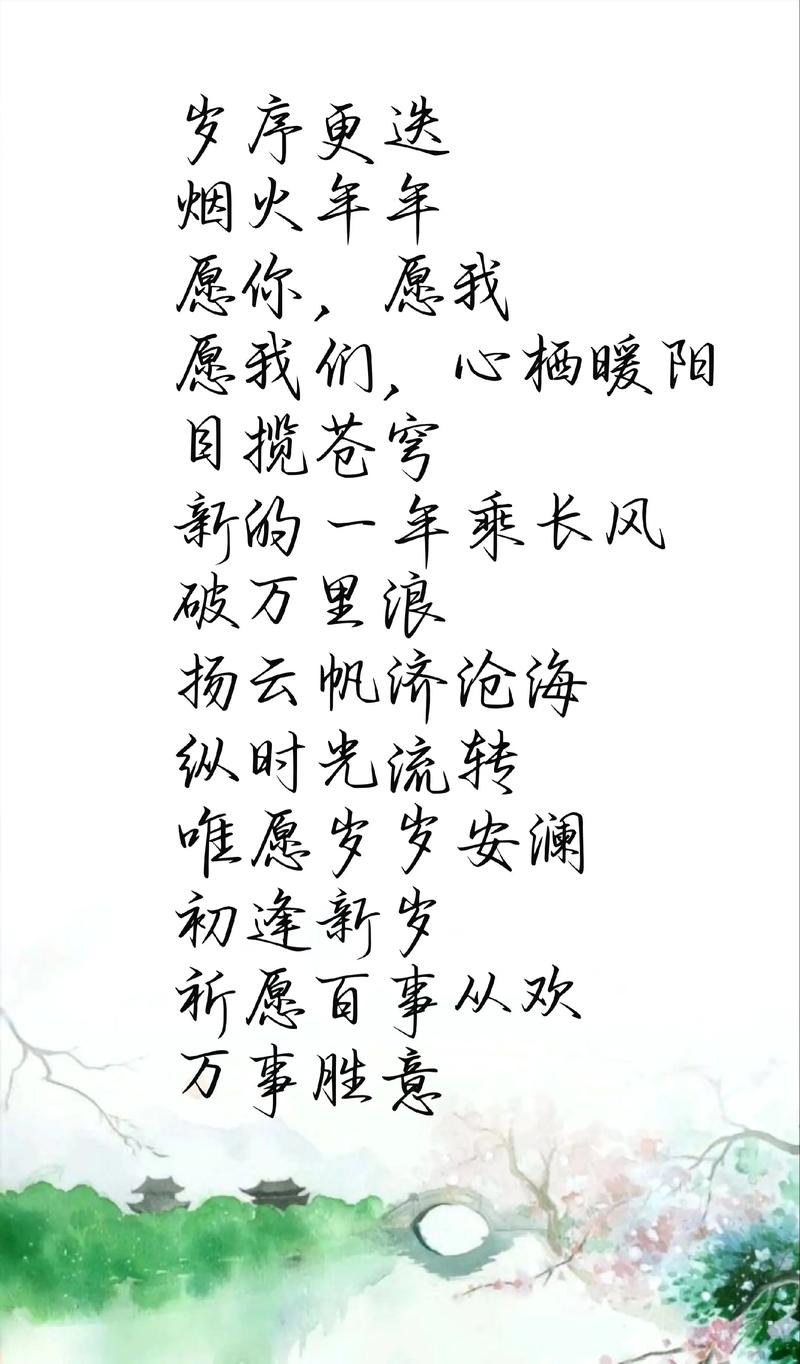 岁序更迭
烟火年年
愿你，愿我
愿我们，心栖暖阳
目揽苍穹
新的一年乘长风
破万里浪
扬云帆济沧海
纵时光流转
唯愿岁岁安澜
初逢新岁
祈愿百事从欢
万事胜意